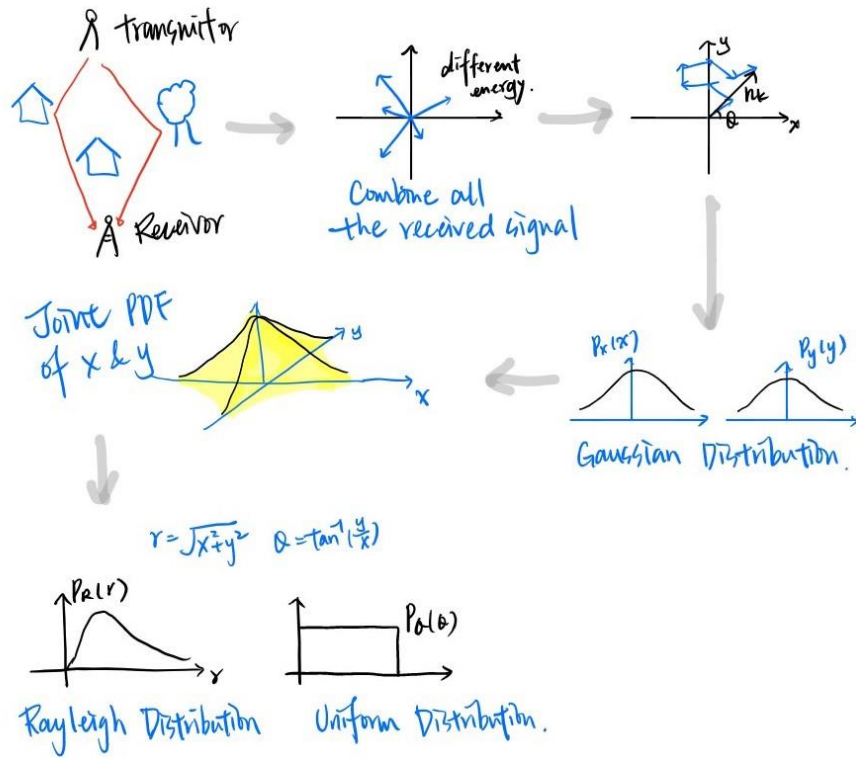 transmittor
Receivor
different
energy.
Combine all
the received signal
y
x
θ
Joint PDF
of x & y
y
x
Px(x)
Py(y)
Gaussian Distribution.
r=√x²+y² θ=tan⁻¹(y/x)
PR(r)
r
Pθ(θ)
Rayleigh Distribution
Uniform Distribution.